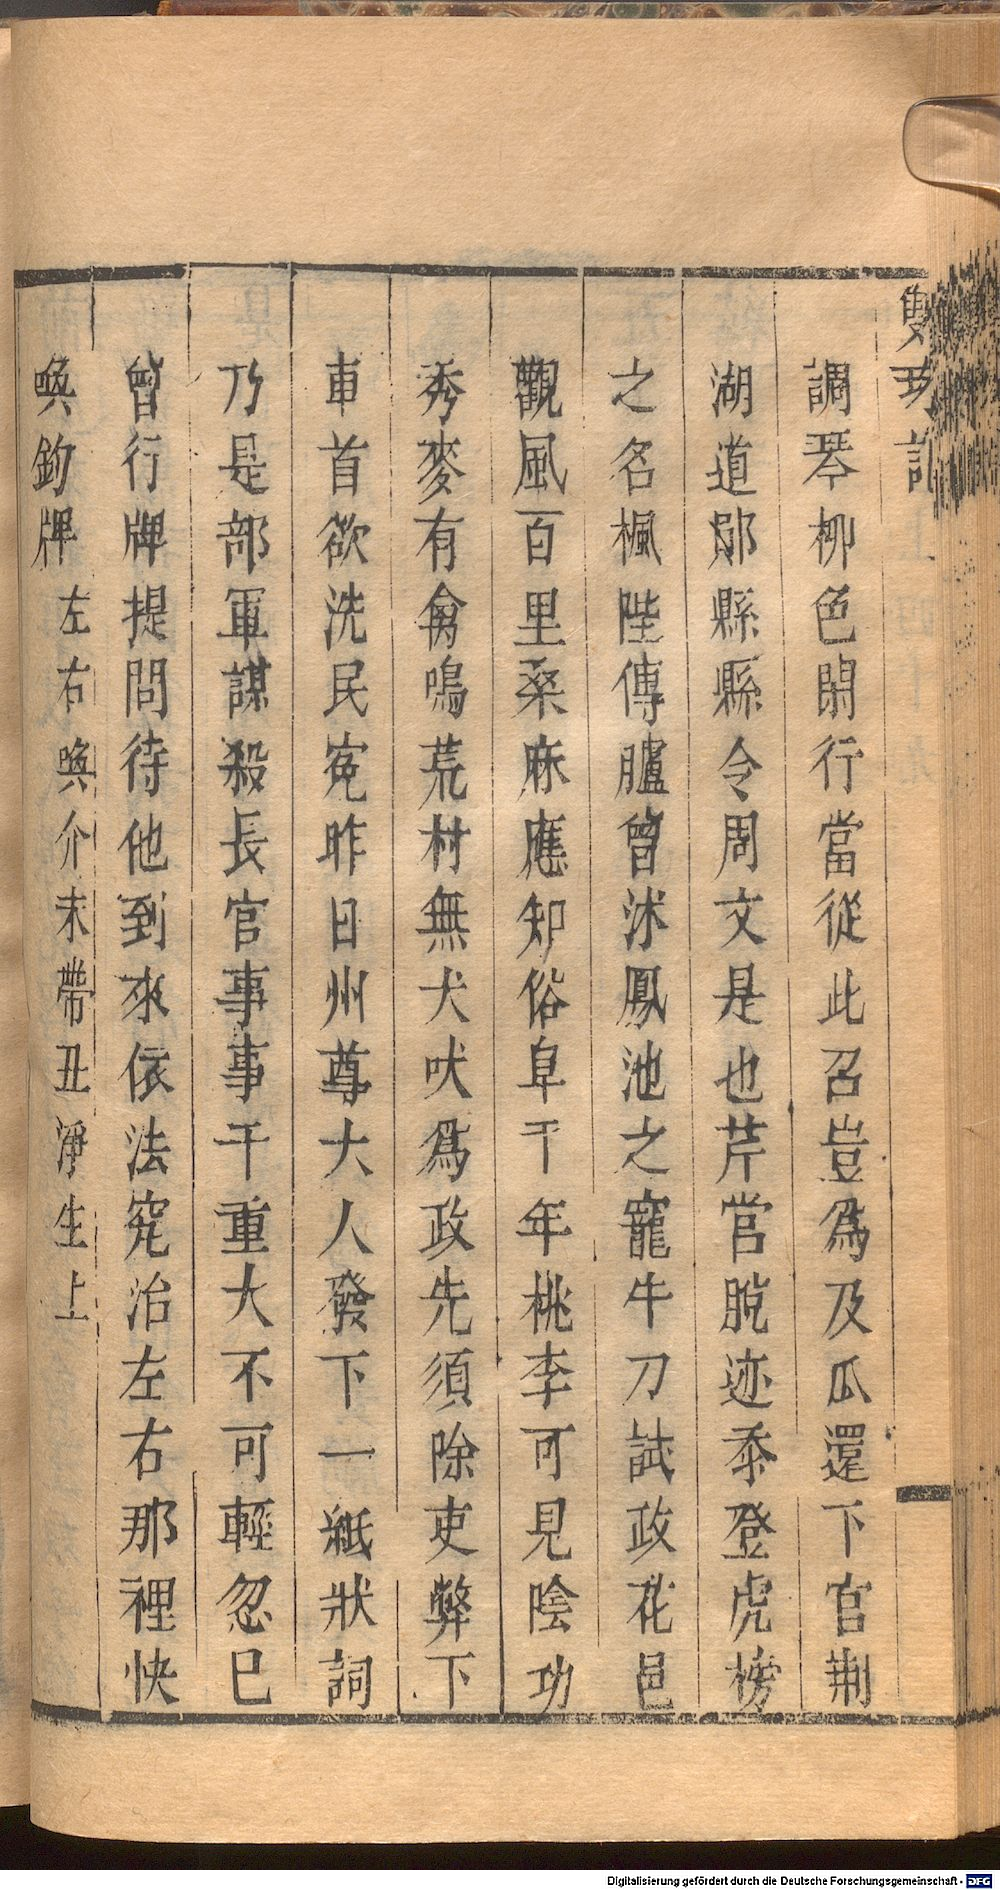 雙功記
調琴柳色閒行當從此召豈爲及瓜還下官荆
湖道鄖縣縣令周文是也芹官脫迹忝登虎榜
之名楓陛傳臚曾沭鳳池之寵牛刀試政花邑
觀風百里桑麻應知俗阜千年桃李可見陰功
秀麥有禽鳴荒村無犬吠爲政先須除吏弊下
車首欲洗民寃昨日州尊大人發下一紙狀詞
乃是部軍謀殺長官事事干重大不可輕忽已
曾行牌提問待他到來依法究治左右那裡快
喚鈞牌左右喚介末帶丑淨生上
Digitalisierung gefördert durch die Deutsche Forschungsgemeinschaft - DFG